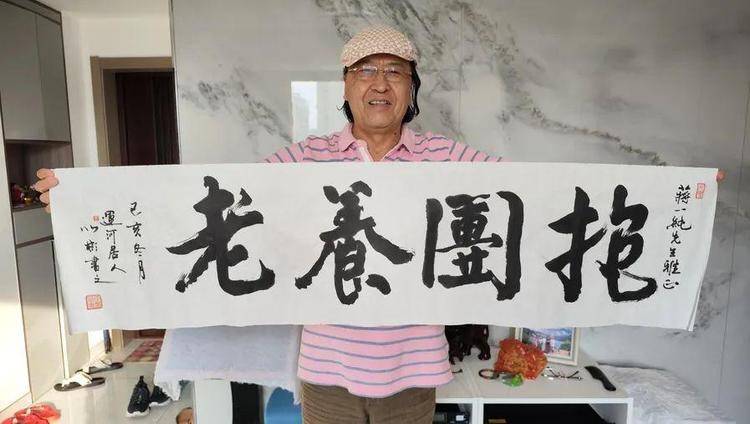 蔣一純先生雅正
抱團養老
己亥冬月
運河居人
書之